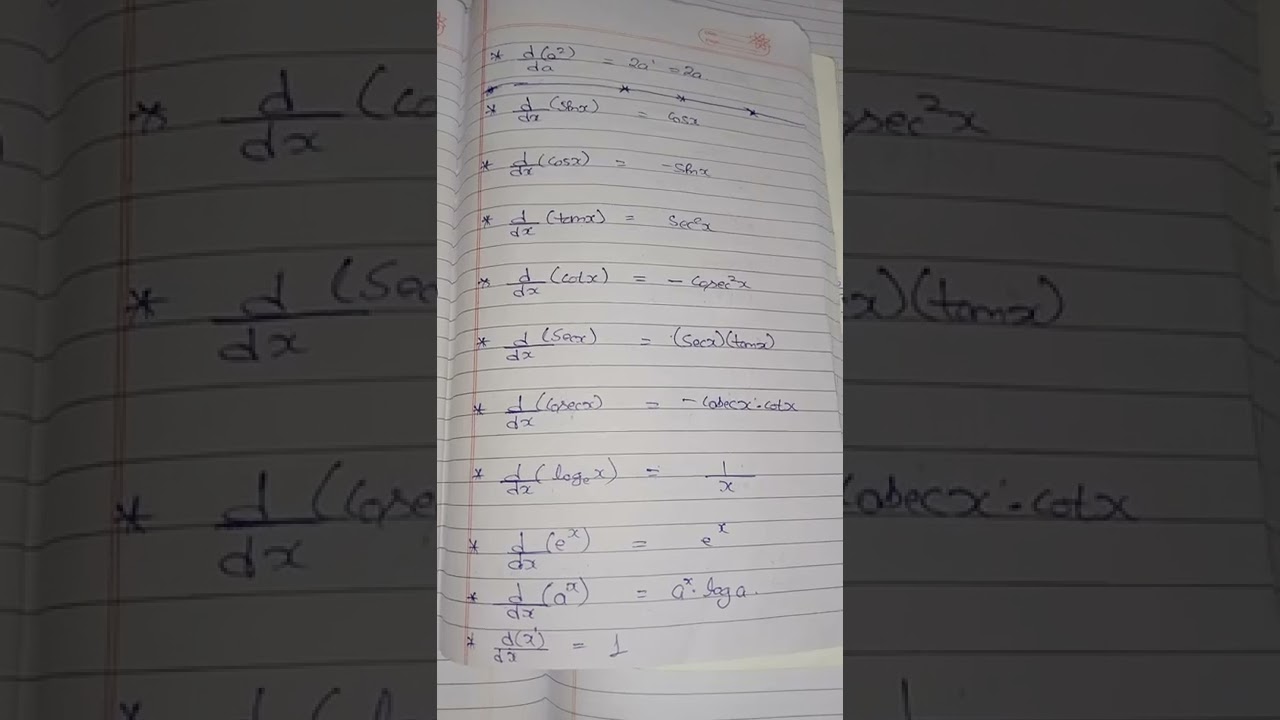 * d(a²)/da = 2a¹ = 2a
* d/dx (sinx) = cosx
* d/dx (cosx) = -sinx
* d/dx (tanx) = sec²x
* d/dx (cotx) = - cosec²x
* d/dx (secx) = (secx)(tanx)
* d/dx (cosecx) = - cosecx · cotx
* d/dx (logₑx) = 1/x
* d/dx (eˣ) = eˣ
* d/dx (aˣ) = aˣ · log a.
* d(x¹)/dx = 1